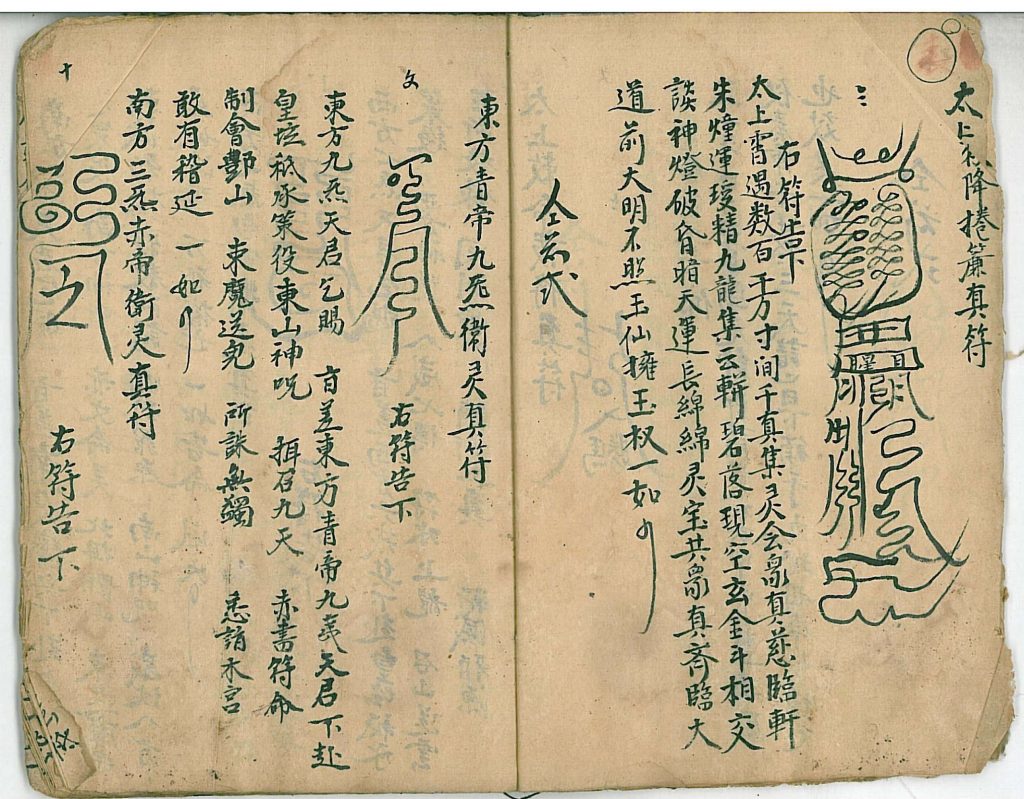 太上
降捲簾真符
右符告下
太上霄遇数百千万寸洞千真集灵会众真慈臨軒
朱燈運璦精九龍集云軿碧落現空玄金斗相交
談神燈破昏暗天運長綿綿灵宝共众真齐臨大
道前大明不照玉仙擁玉权一如
仝前式
東方青帝九炁衛灵真符
文
右符告下
東方九炁天君乞賜 旨差東方青帝九炁天君下赴
皇坛祇承策役東山神呪 摄召九天 赤書符命
制會酆山 束魔送鬼 所誅無蠲 悉詣木宮
敢有稽延 一如
南方三炁赤帝衛灵真符
十
右符告下